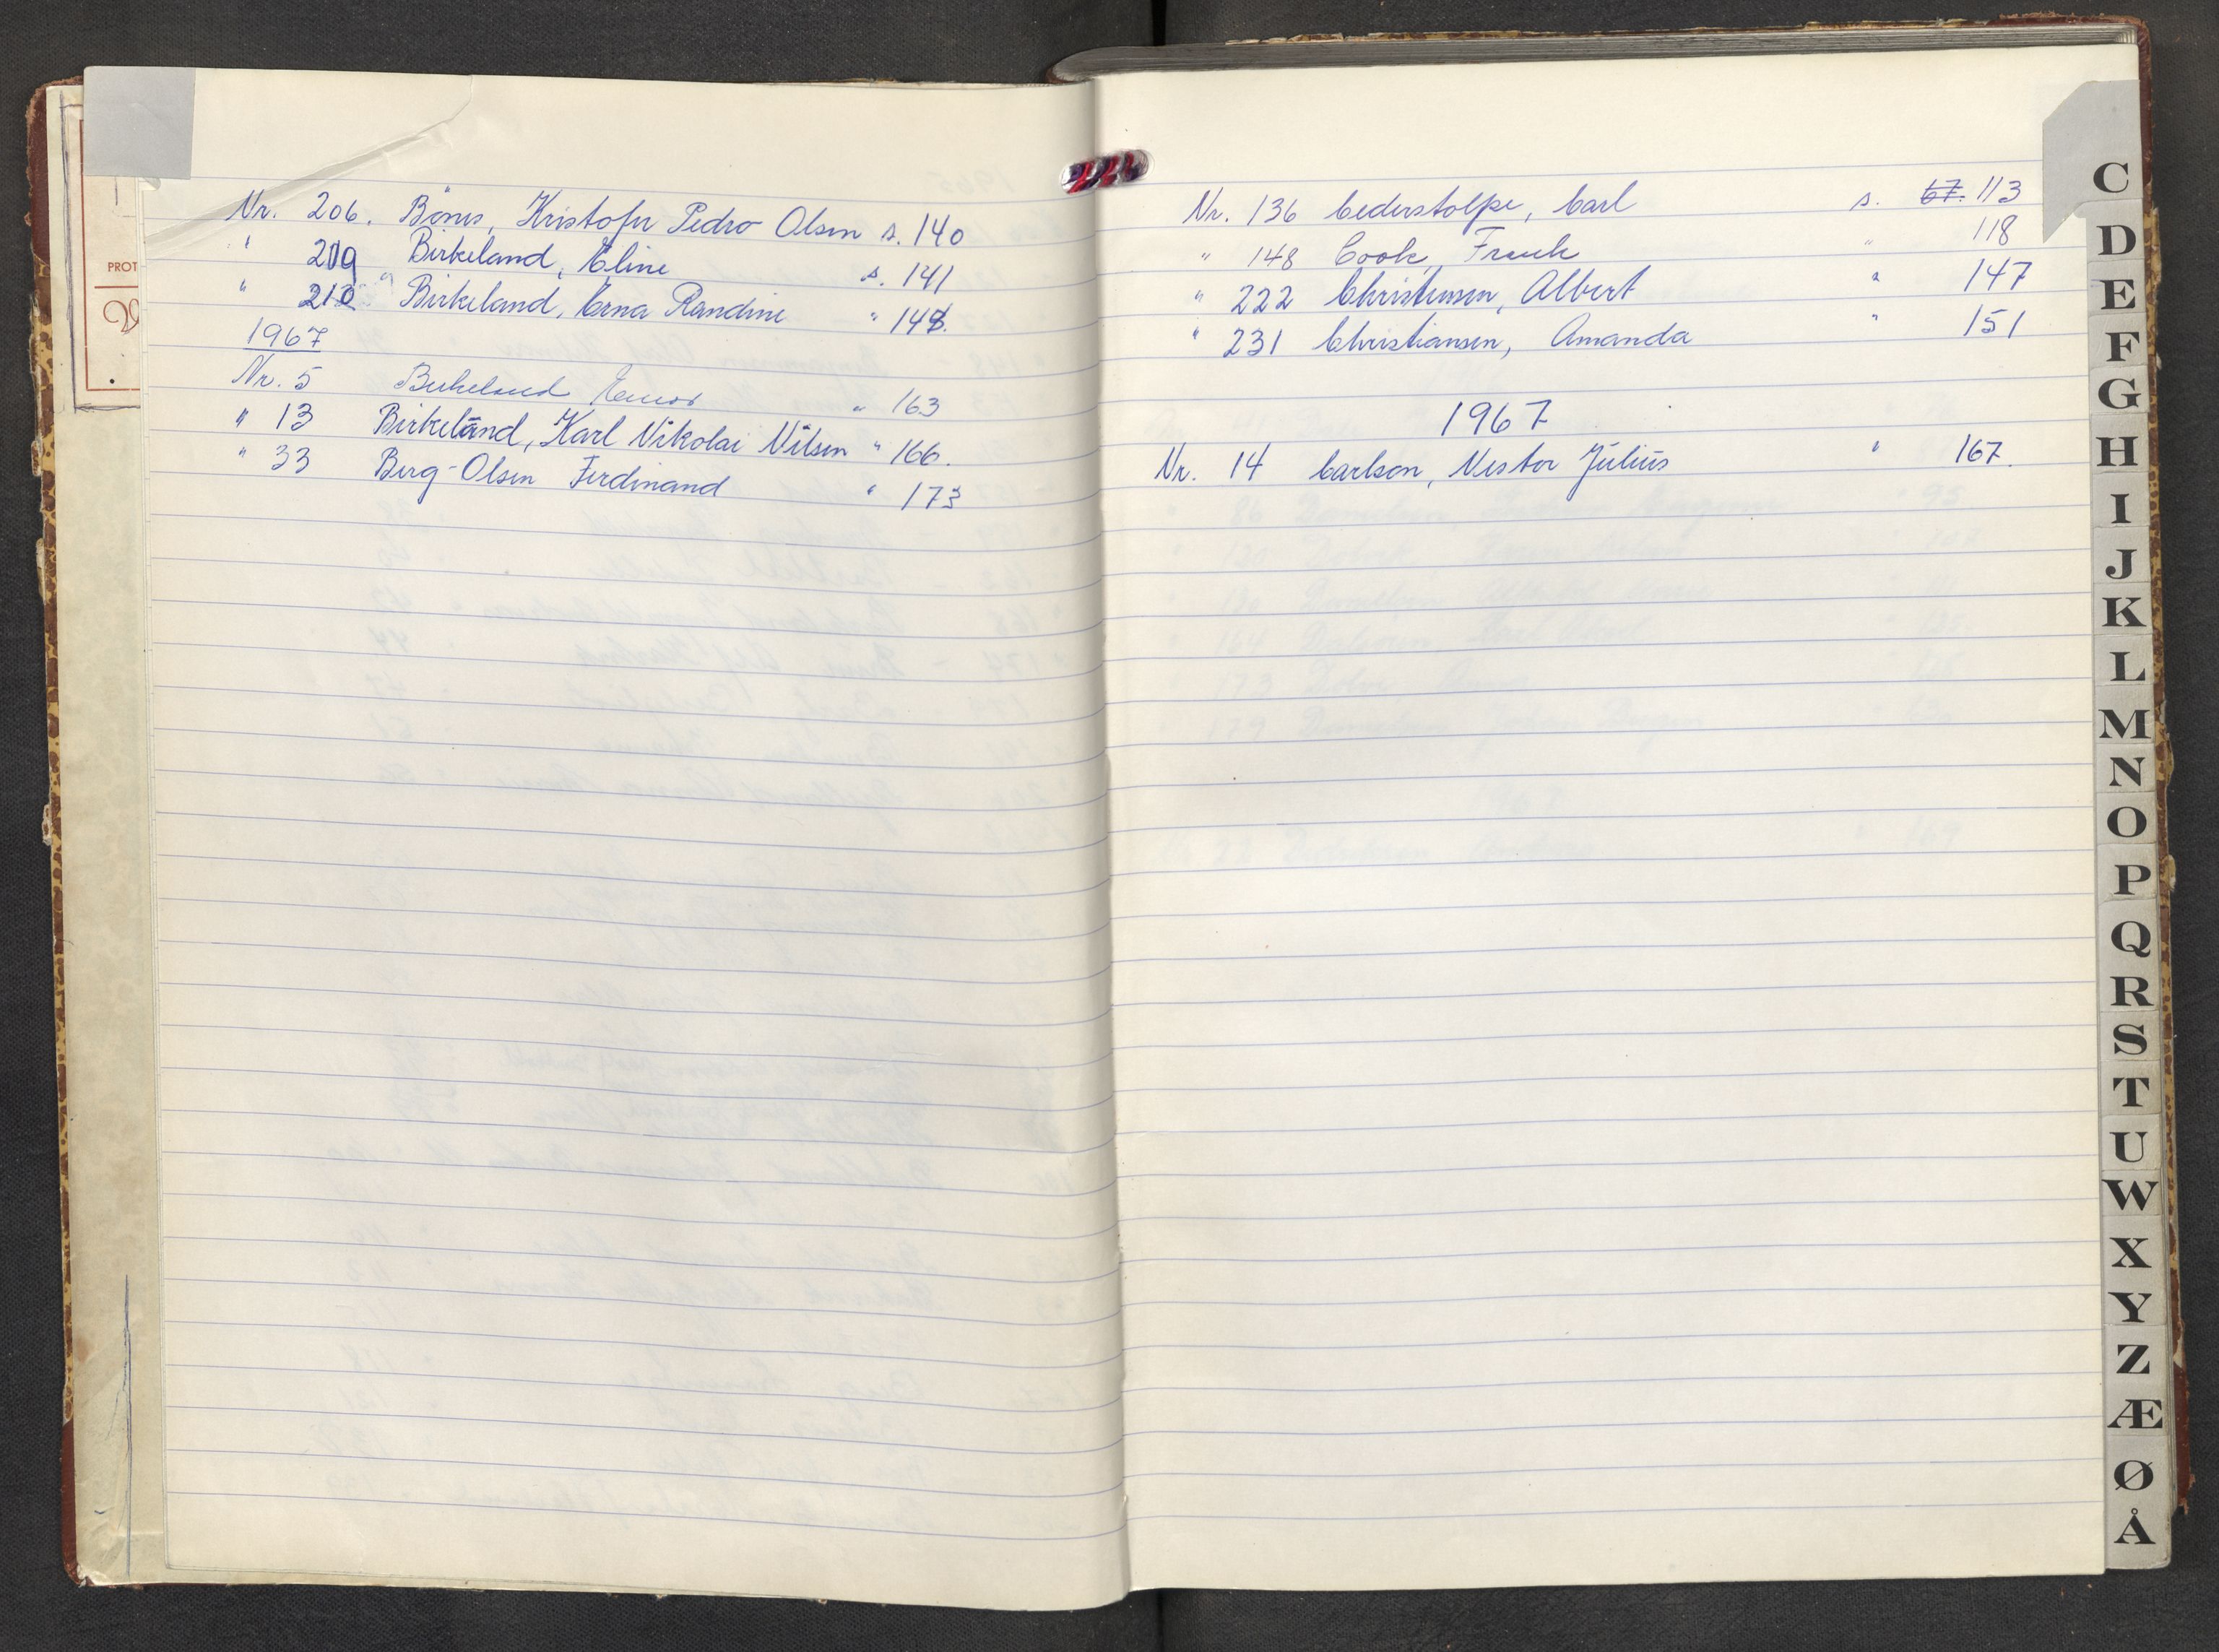 PROT
Nr. 206. Bönes, Kristofer Pedro Olsen s. 140
" 209 Birkeland, Eline s. 141
" 210 " Birkeland, Erna Randine " 148.
1967
Nr. 5 Birkeland " 163
" 13 Birkeland, Karl Nikolai Nilsen " 166.
" 33 Berg-Olsen Ferdinand " 173
Nr. 136 Cederstolpe, Carl s. 67. 113
" 148 Cook, Frank " 118
" 222 Christensen, Albert " 147
" 231 Christiansen, Amanda " 151
1967
Nr. 14 Carlson, Nestor Julius " 167.
C
D
E
F
G
H
I
J
K
L
M
N
O
P
Q
R
S
T
U
W
X
Y
Z
Æ
Ø
Å